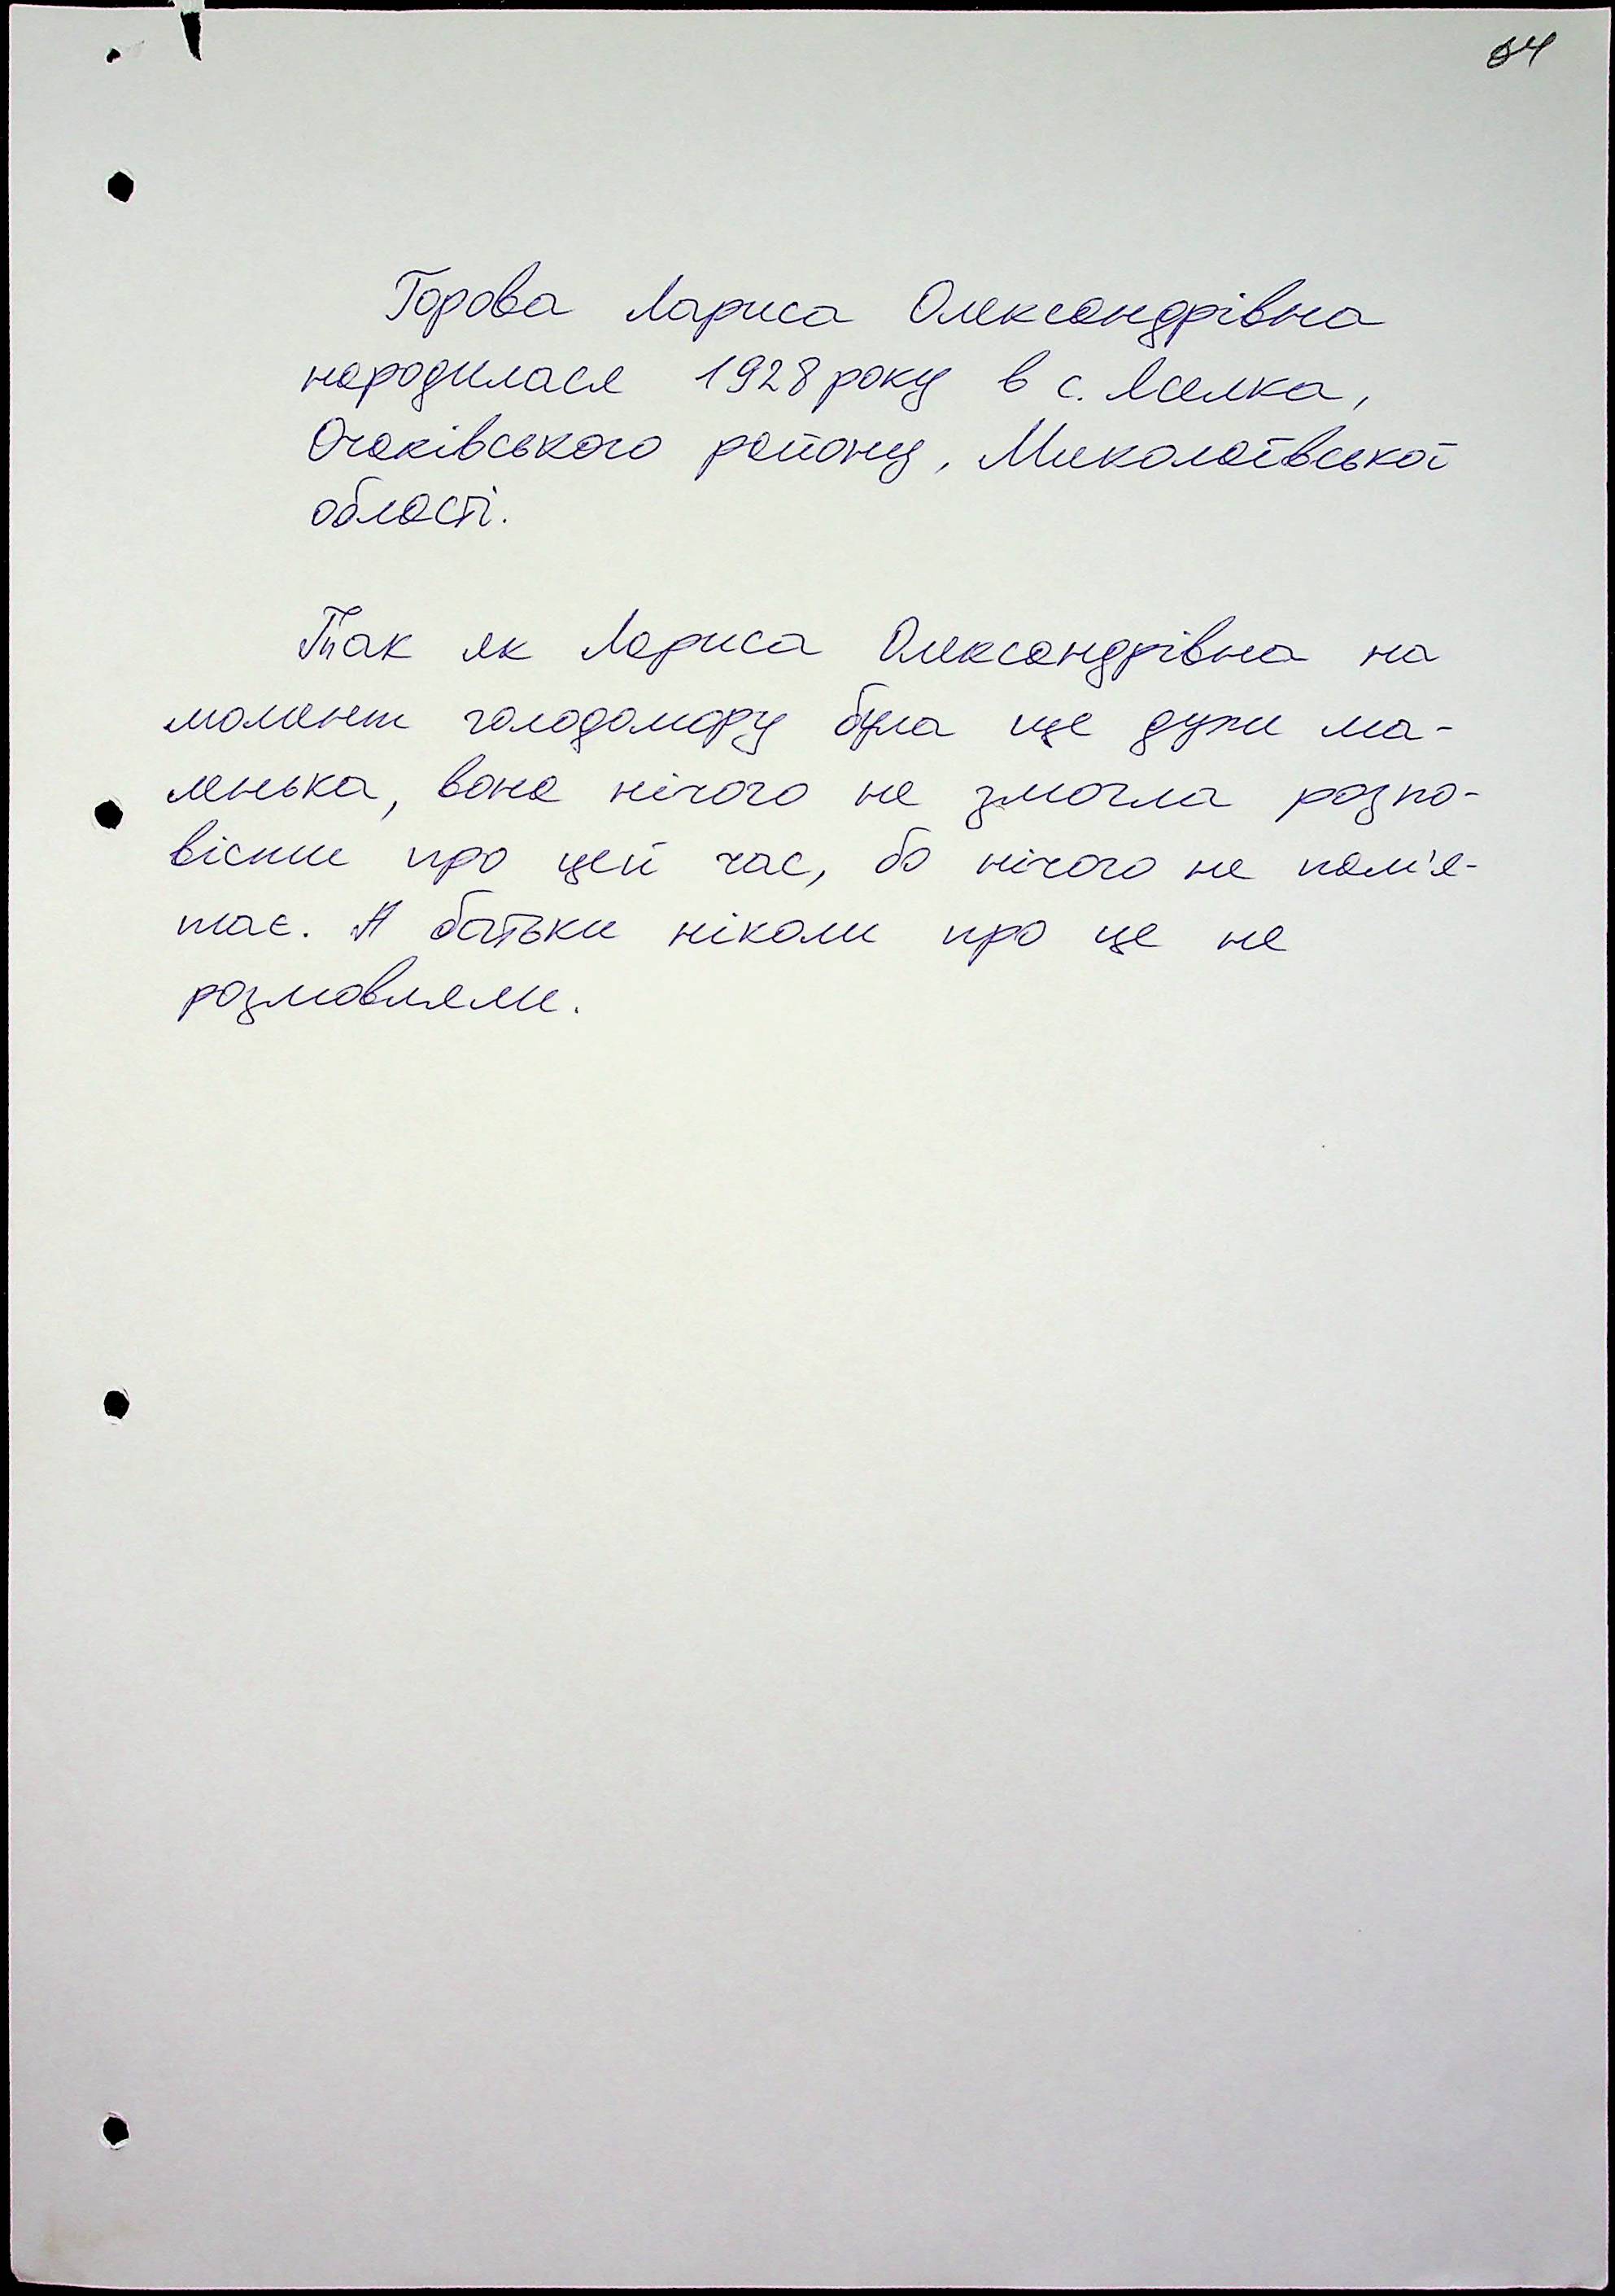 64
Горова Лариса Олександрівна
народилася 1928 року в с. Яселка,
Очаківського району, Миколаївської
області.
Так як Лариса Олександрівна на
момент голодомору була ще дуже ма-
ленька, вона нічого не змогла розпо-
вісти про цей час, бо нічого не пам'я-
тає. А батьки ніколи про це не
розмовляли.